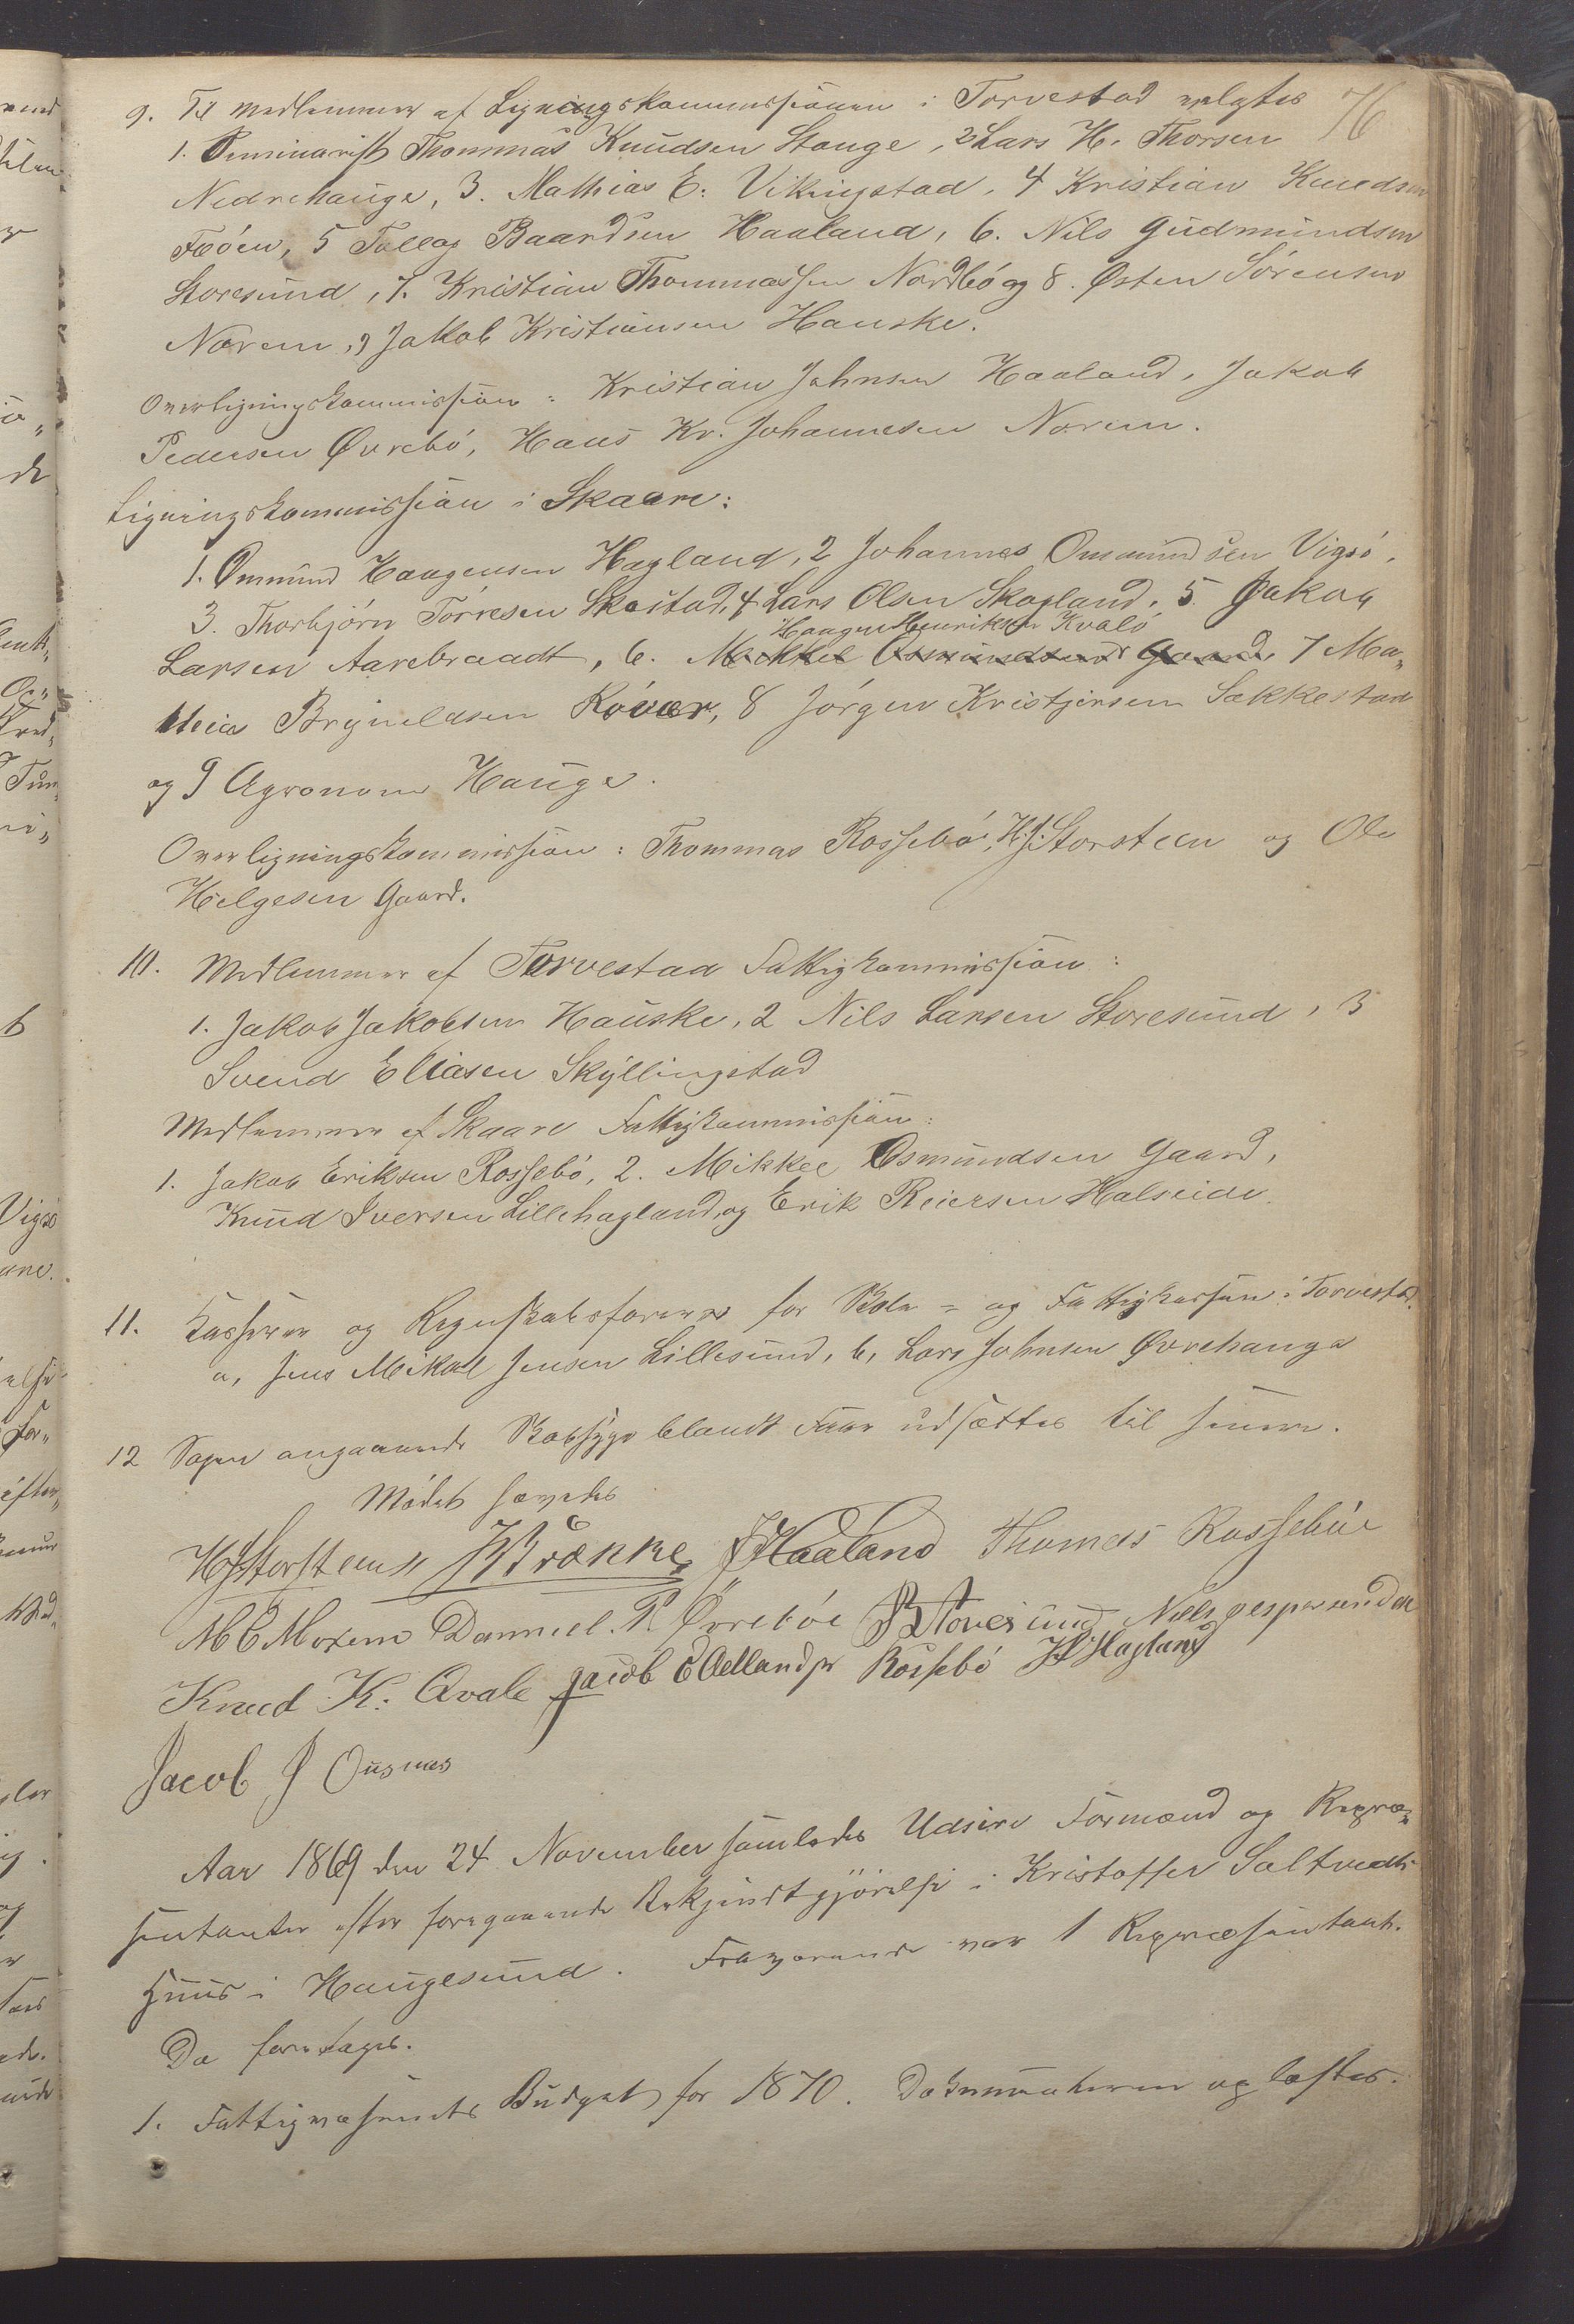 76
9. Til Medlemmer af Ligningskommissionen i Torvestad valgtes
1. Seminarist Thommas Knudsen Stange, 2 Lars H. Thorsen
Nedrehauge, 3. Mathias E. Vikingstad, 4 Kristian Knudsen
Föen, 5 Tollag Baardsen Haaland, 6. Nils Gudmundsen
Storesund, 7. Kristian Thommassen Nordbö og 8. Østen Sörensen
Norem, 9 Jakob Kristiansen Hauske.
Overligningskommission: Kristian Johnsen Haaland, Jakob
Pedersen Øvrebö, Hans Kr. Johannesen Norem.
Ligningskommission i Skaare:
1. Ommund Haagensen Hagland, 2 Johannes Ommundsen Vigsö,
3. Thorbjörn Törresen Skastad, 4 Lars Olsen Skogland, 5. Jakob
Haagen Henriksen Kvalö
Larsen Aarebraadt, 6. Mikkel Osmundsen Gaard, 7 Ma-
thias Brynildsen Röver, 8 Jörgen Kristjersen Sakkestad
og 9 Agronom Hauge.
Overligningskommission: Thommas Rossebö, H. J. Storsteen og Ole
Helgesen Gaard.
10. Medlemmer af Torvestad Fattigkommission:
1. Jakob Jakobsen Hauske, 2 Nils Larsen Storesund, 3
Svend Eliasen Skyllingstad
Medlemmer af Skaare Fattigkommission:
1. Jakob Eriksen Rossebö, 2. Mikkel Osmundsen Gaard,
Knud Iversen Lillehagland, og Erik Reiersen Halseide.
11. Kasserer og Regnskabsförere for Skole- og Fattigkassen i Torvestad.
a, Jens Mikal Jensen Lillesund, b, Lars Johnsen Øvrehauge
12 Sagen angaaende Skabsyge blandt Faar udsættes til senere.
Mödet hævedes
HJStorsteen JBrække JJHaaland Thomas Rossebøe
M O Norem Danniel. P. Övreböe Storesund Niels Jespersen
Knud K. Qvale Jacob E Aelland Rossebö Hagland
Jacob J Ousnes
Aar 1869 den 24 November samledes Udsire Formænd og Repræ-
sentanter efter foregaaende Bekjendtgjörelse i Kristoffer Saltvedts
Huus i Haugesund. Fraværende var 1 Repræsentant.
Da foretages.
1. Fattigvæsenets Budget for 1870. Dokumenterne oplæstes.